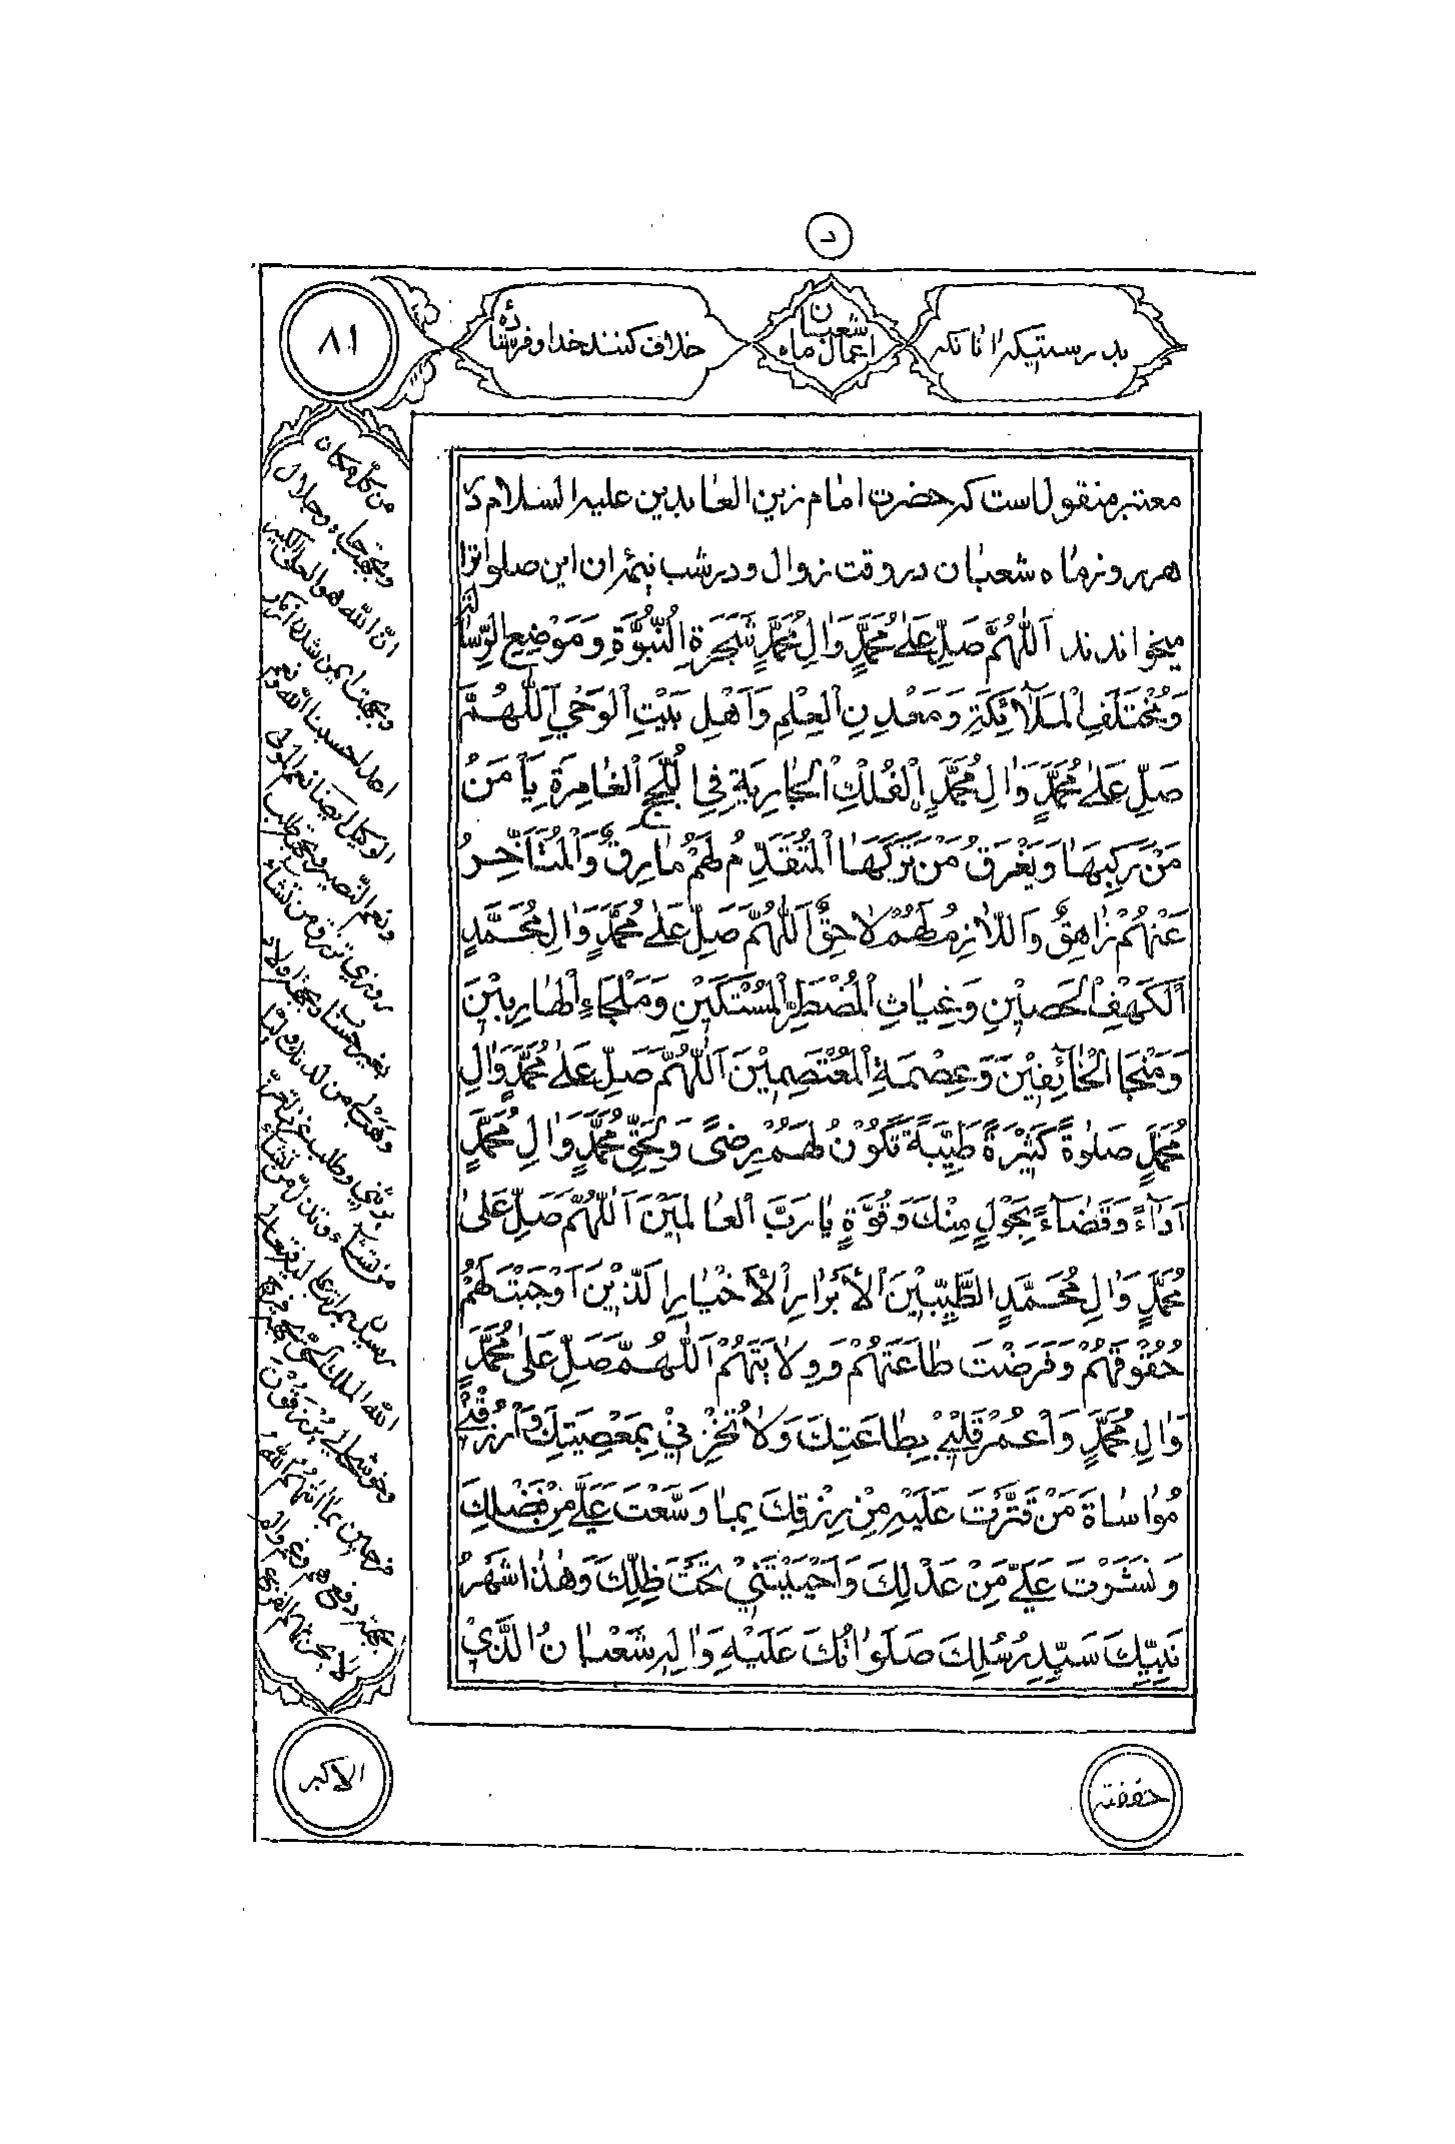 د
بدرستیکه انانکه
اعمال ماه شعبان
خلاف کنند خدا و فرستاده
٨١
معتبر منقول است که حضرت امام زین العابدین علیه السلام در
هر روز ماه شعبان در وقت زوال و در شب نیمه ان این صلوات را
میخواندند اَللّٰهُمَّ صَلِّ عَلٰى مُحَمَّدٍ وَاٰلِ مُحَمَّدٍ شَجَرَةِ النُّبُوَّةِ وَمَوْضِعِ الرِّسٰالَةِ
وَمُخْتَلَفِ الْمَلٰٓائِكَةِ وَمَعْدِنِ الْعِلْمِ وَاَهْلِ بَيْتِ الْوَحْيِ اَللّٰهُمَّ
صَلِّ عَلٰى مُحَمَّدٍ وَاٰلِ مُحَمَّدٍ الْفُلْكِ الْجٰارِيَةِ فِي اللُّجَجِ الْغٰامِرَةِ يَاْمَنُ
مَنْ رَكِبَهٰا وَيَغْرَقُ مَنْ تَرَكَهَا الْمُتَقَدِّمُ لَهُمْ مٰارِقٌ وَالْمُتَاَخِّرُ
عَنْهُمْ زٰاهِقٌ وَاللّٰازِمُ لَهُمْ لٰاحِقٌ اَللّٰهُمَّ صَلِّ عَلٰى مُحَمَّدٍ وَاٰلِ مُحَمَّدٍ
اَلْكَهْفِ الْحَصِيْنِ وَغِيٰاثِ الْمُضْطَرِّ الْمُسْتَكِيْنِ وَمَلْجَاءِ الْهٰارِبِيْنَ
وَمَنْجَا الْخٰآئِفِيْنَ وَعِصْمَةِ الْمُعْتَصِمِيْنَ اَللّٰهُمَّ صَلِّ عَلٰى مُحَمَّدٍ وَاٰلِ
مُحَمَّدٍ صَلٰوةً كَثِيْرَةً طَيِّبَةً تَكُوْنُ لَهُمْ رِضىً وَلِحَقِّ مُحَمَّدٍ وَاٰلِ مُحَمَّدٍ
اَدٰٓاءً وَقَضٰٓاءً بِحَوْلٍ مِنْكَ وَقُوَّةٍ يٰا رَبَّ الْعٰالَمِيْنَ اَللّٰهُمَّ صَلِّ عَلٰى
مُحَمَّدٍ وَاٰلِ مُحَمَّدٍ الطَّيِّبِيْنَ الْاَبْرٰارِ الْاَخْيٰارِ الَّذِيْنَ اَوْجَبْتَ لَهُمْ
حُقُوْقَهُمْ وَفَرَضْتَ طٰاعَتَهُمْ وَوِلٰايَتَهُمْ اَللّٰهُمَّ صَلِّ عَلٰى مُحَمَّدٍ
وَاٰلِ مُحَمَّدٍ وَاعْمُرْ قَلْبِيْ بِطٰاعَتِكَ وَلٰا تُخْزِنِيْ بِمَعْصِيَتِكَ وَارْزُقْنِيْ
مُوٰاسٰاةَ مَنْ قَتَّرْتَ عَلَيْهِ مِنْ رِزْقِكَ بِمٰا وَسَّعْتَ عَلَيَّ مِنْ فَضْلِكَ
وَنَشَرْتَ عَلَيَّ مِنْ عَدْلِكَ وَاَحْيَيْتَنِيْ تَحْتَ ظِلِّكَ وَهٰذٰا شَهْرُ
نَبِيِّكَ سَيِّدِ رُسُلِكَ صَلَوٰاتُكَ عَلَيْهِ وَاٰلِهِ شَعْبٰانُ الَّذِيْ
من كل مكان
و بجهة جاه و جلال
ان الله هو العلي الكبير
الوكيل ايضا نعم المولى
و نعم النصير و بجهة طلب
روزي ترزق من تشاء
بغير حساب بجهة اولاد
الله الملك الحق
فرحين بما اتيهم الله
بجهة دفع هم و غم
لا يحزنهم الفزع
الاكبر
حففته